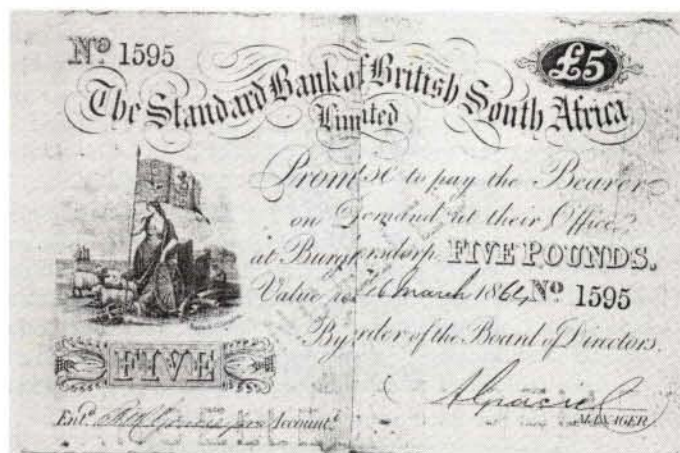 Nº 1595
£5
The Standard Bank of British South Africa
Limited
Promise to pay the Bearer
on Demand at their Office
at Burghersdorp FIVE POUNDS.
Value rec 16 March 1864 Nº 1595
By order of the Board of Directors.
FIVE
Entd. Accountt.
MANAGER